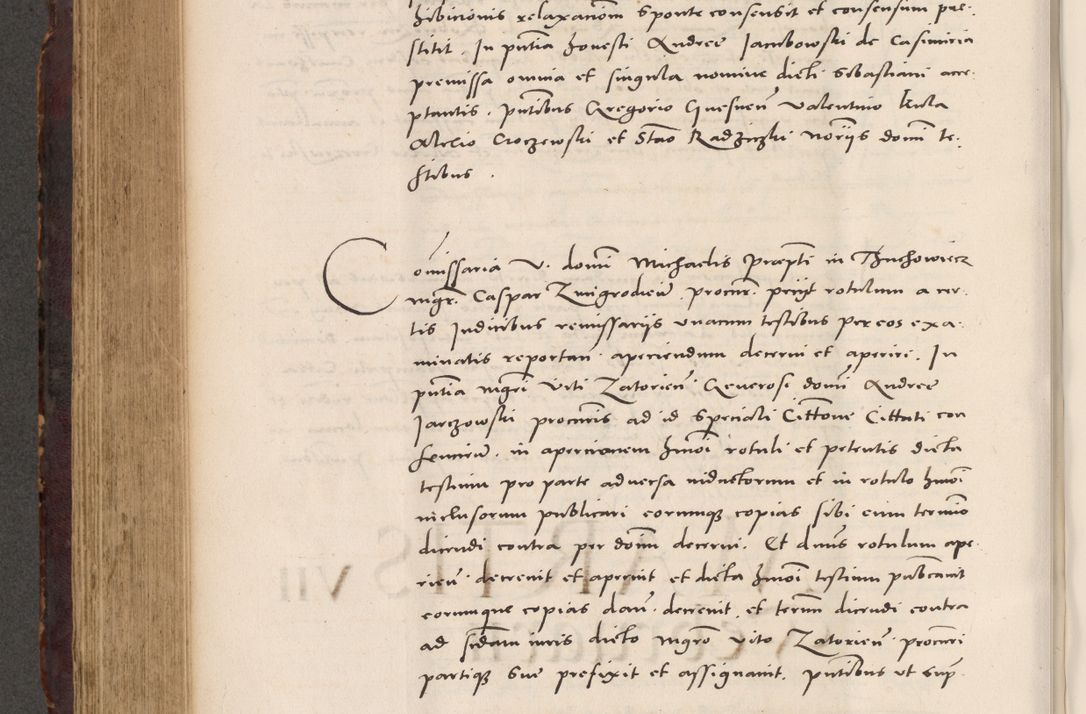 hibicionis relaxacionem sponte consensit et consensum pre-
stitit. In pntia honesti Andree Jacubowski de Casimiria
premissa omnia et singula nomine dicti Sebastiani acce-
ptantis. pntibus Gregorio Gnesnen Valentino Kula
Alexio Croczewski et Stao Radziczki noriis domi te-
stibus.
Comissaria V. domi Michaelis Praepti in Thuchowiecz
mgr. Caspar Zmigrodien procur. peciit rotulum a cer-
tis Judicibus remissariis unacum testibus per eos exa-
minatis reportan. aperiendum decerni et aperire. In
pntia mgri Viti Zatorien Generosi domi Andree
Jarczowski procuris ad id speciali Cittone Cittati con
sencien. in apercionem hmoi rotuli et petentis dicta
testium pro parte adversa inductorum et in rotulo hmoi
inclusorum publicari eorumq copias sibi cum termio
dicendi contra per domi decerni. Et dnus rotulum ape-
rien. decrevit et aperuit et dicta hmoi testium pubcauit
eorumque copias dan. decrevit, et termi dicendi contra
ad scdam iuris dicto mgro Vito Zatorien procuri
partiq sue prefixit et assignauit. pntibus ut sup.